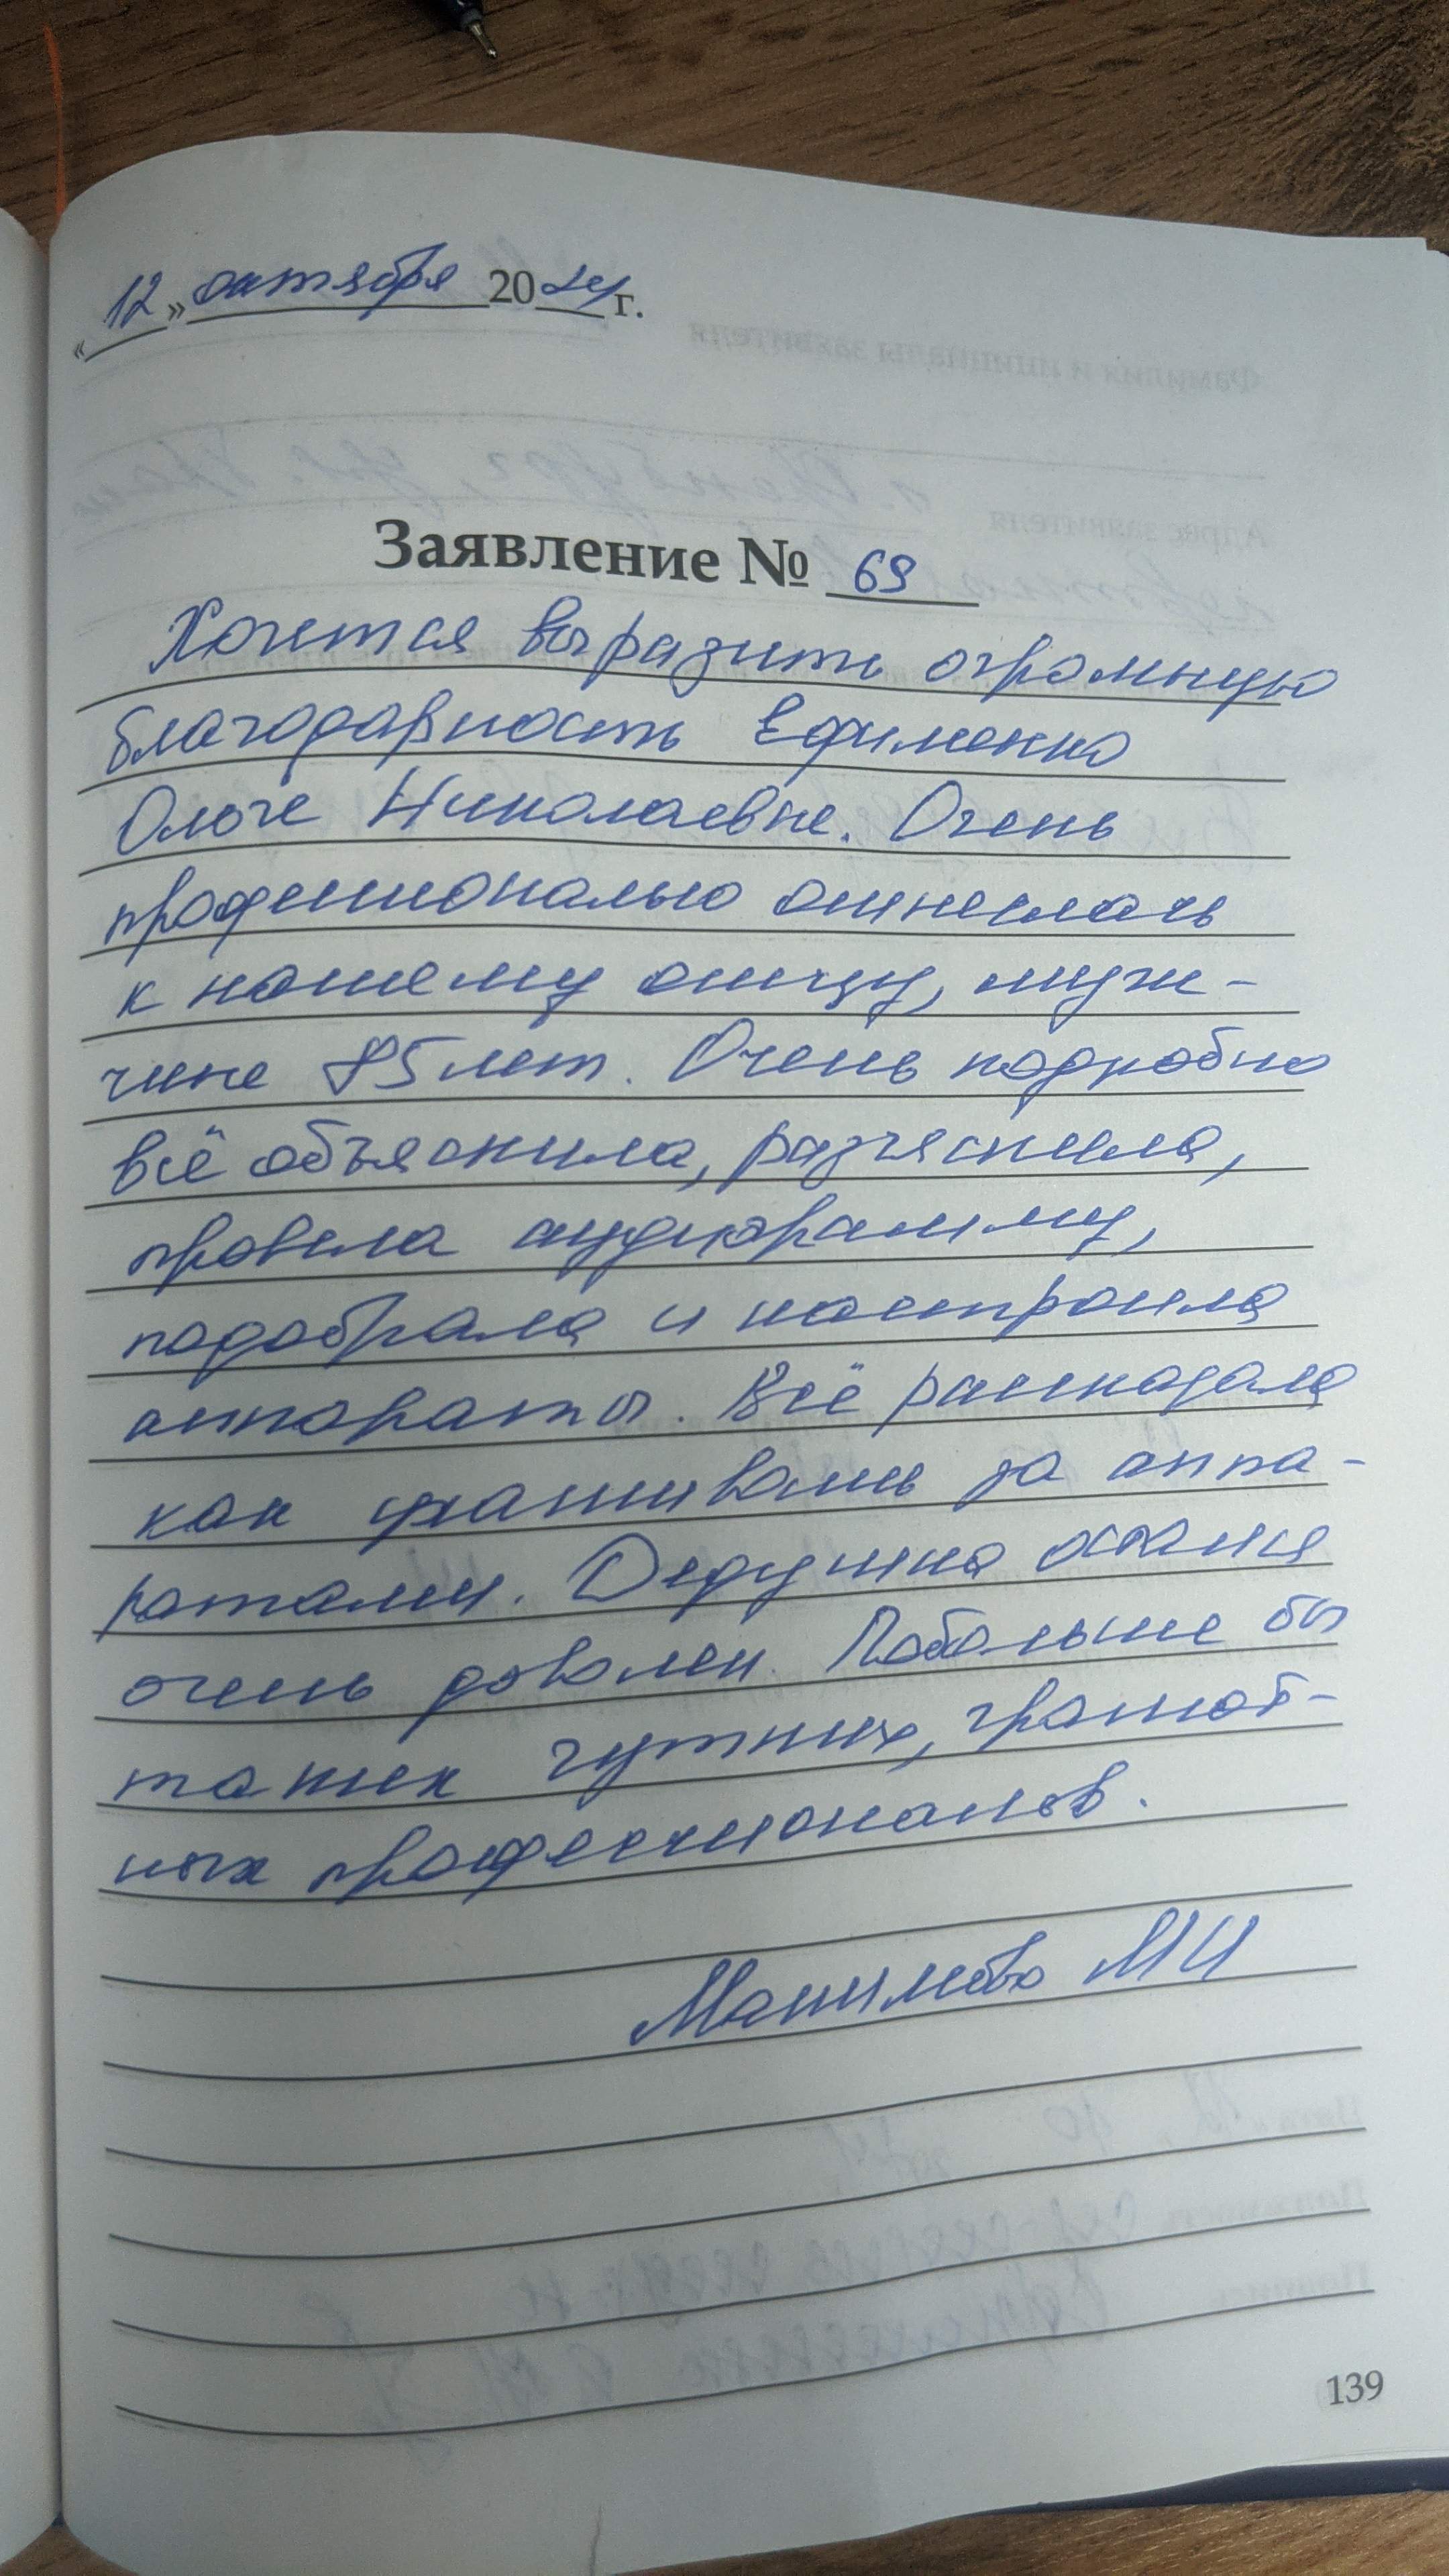 «12» октября 2024 г.
Заявление № 69
Хочется выразить огромную
благодарность Ефименко
Ольге Николаевне. Очень
профессионально отнеслась
к нашему отцу, муж-
чине 85 лет. Очень подробно
всё объяснила, разъяснила,
провела аудиограмму,
подобрала и настроила
аппараты. Всё рассказала
как ухаживать за аппа-
ратами. Дедушка остался
очень доволен. Побольше бы
таких чутких, грамот-
ных профессионалов.
МИ
139